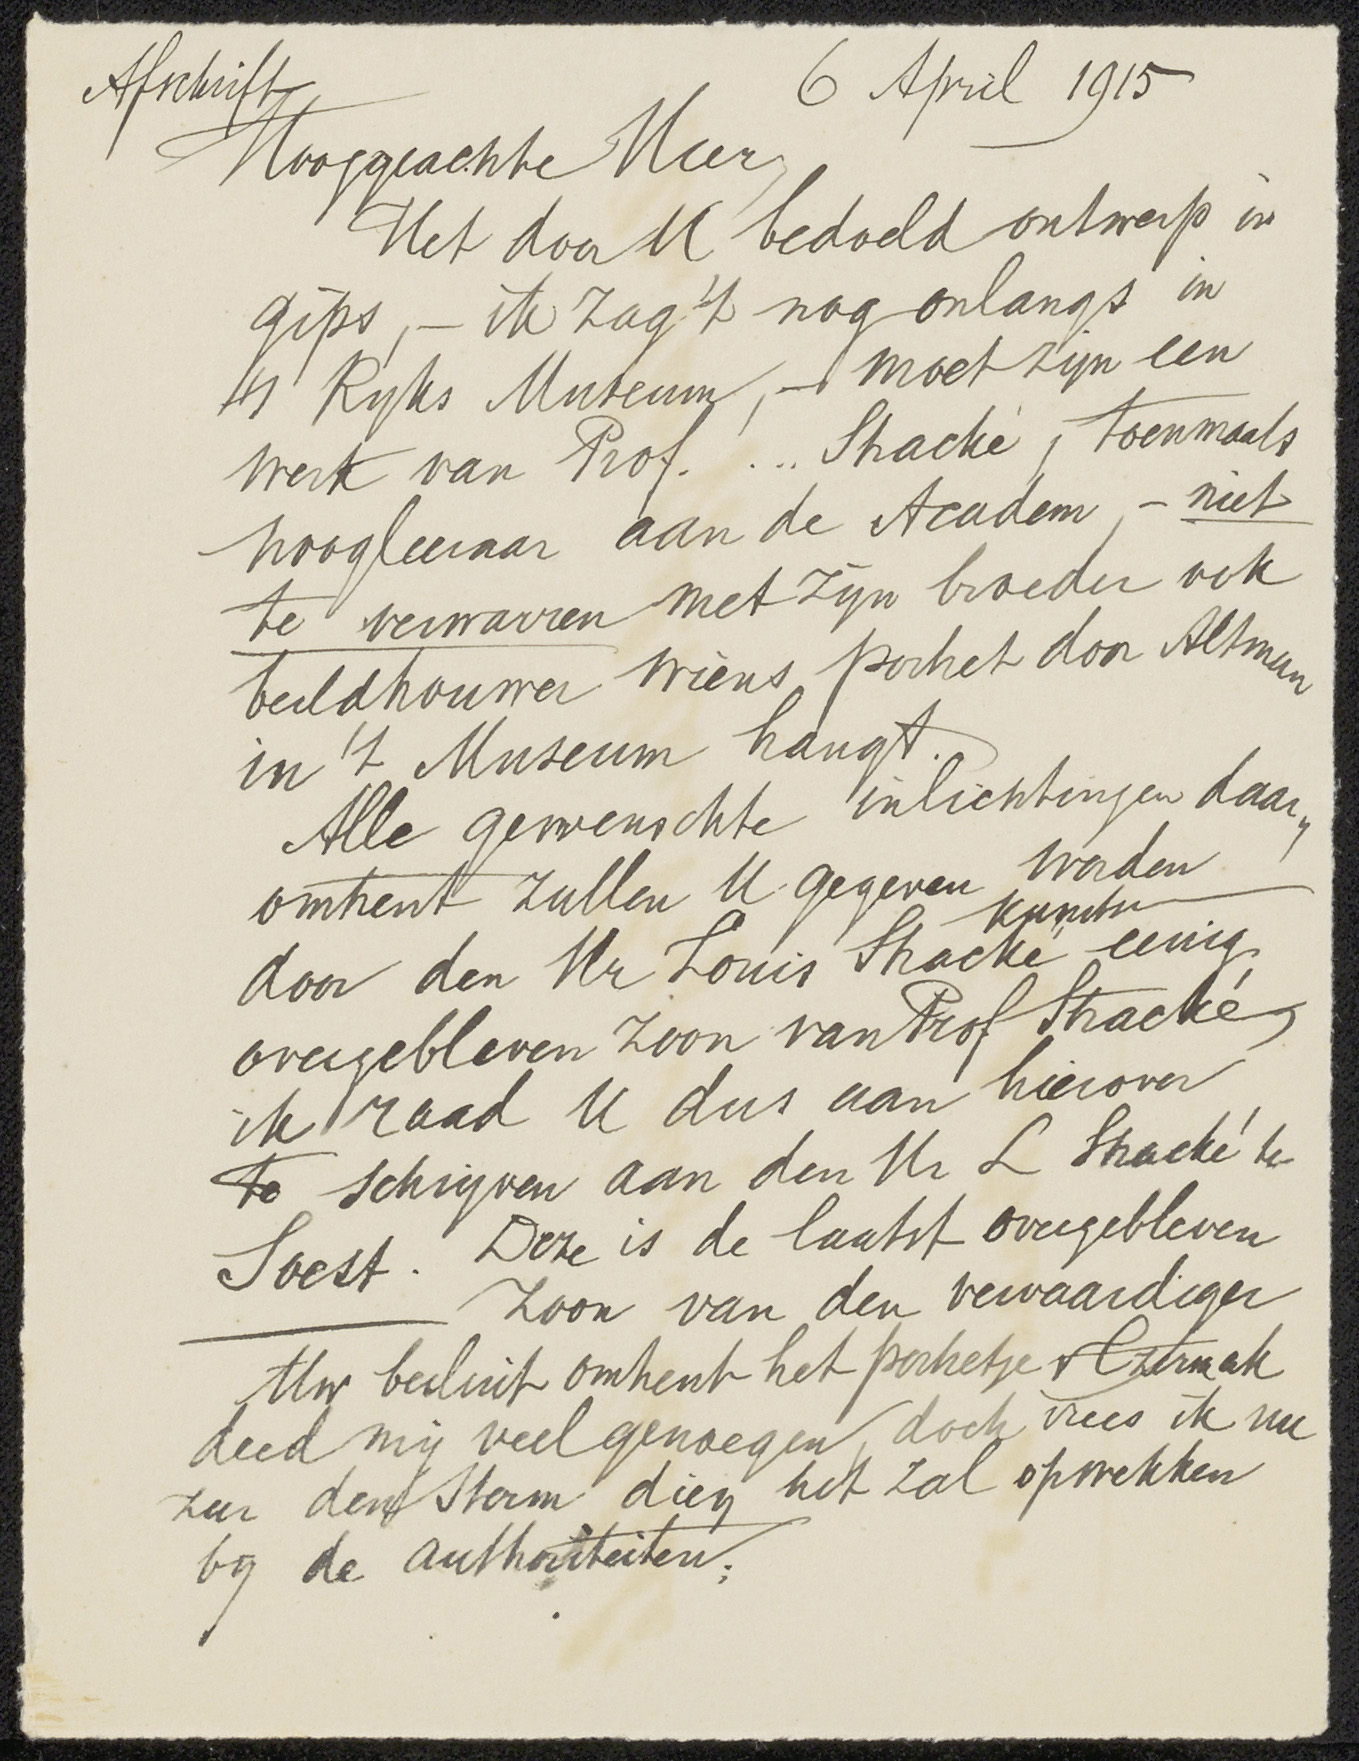 Afschrift 6 April 1915
Hooggeachte Heer,
Het door U bedoeld ontwerp in
gips, – ik zag 't nog onlangs in
't Ryks Museum, – moet zijn een
werk van Prof. ... Stracké, toenmaals
hoogleeraar aan de Academ, – niet
te verwarren met zijn broeder ook
beeldhouwer wiens portret door Altman
in 't Museum hangt.
Alle gewenschte inlichtingen daar„
omtrent zullen U gegeven worden
kunnen
door den Hr Louis Stracké eenig
overgebleven zoon van Prof Stracké,
ik raad U dus aan hierover
te schrijven aan den Hr L Stracké te
Soest. Deze is de laatst overgebleven
zoon van den vervaardiger
Uw besluit omtrent het portretje v Czermak
deed mij veel genoegen, doch vrees ik nu
zeer den storm dien het zal opwekken
bij de authoriteiten.